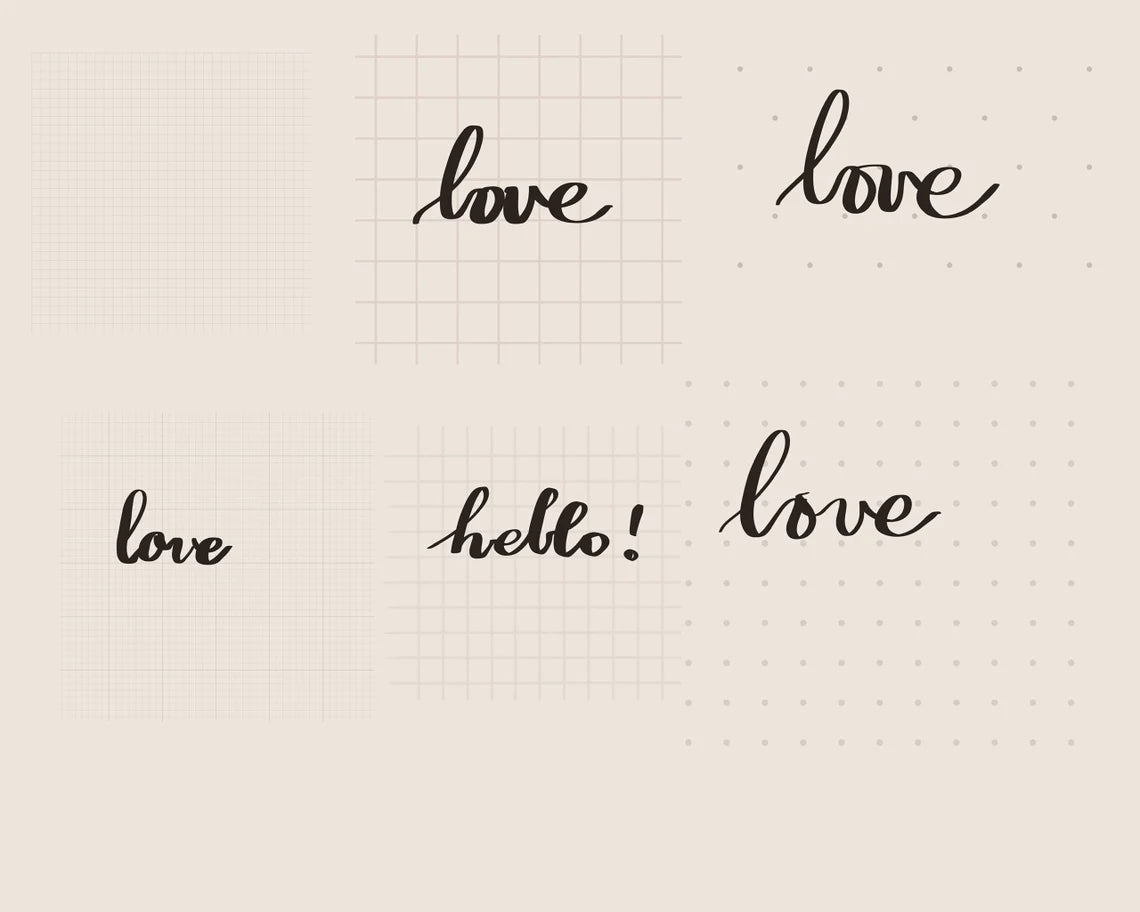 love
love
love
hello!
love